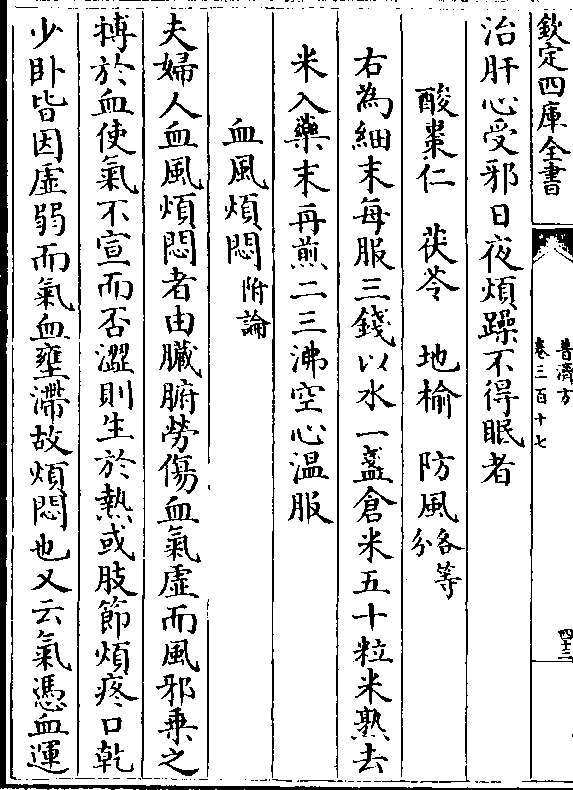 欽定四庫全書
普濟方
卷三百十七
四十二
治肝心受邪日夜煩躁不得眠者
酸棗仁 茯苓 地榆 防風各等分
右為細末每服三錢以水一盞倉米五十粒米熟去
米入藥末再煎二三沸空心溫服
血風煩悶附論
夫婦人血風煩悶者由臟腑勞傷血氣虛而風邪乗之
摶於血使氣不宣而否澀則生於熱或肢節煩疼口乾
少卧皆因虛弱而氣血壅滯故煩悶也又云氣憑血運